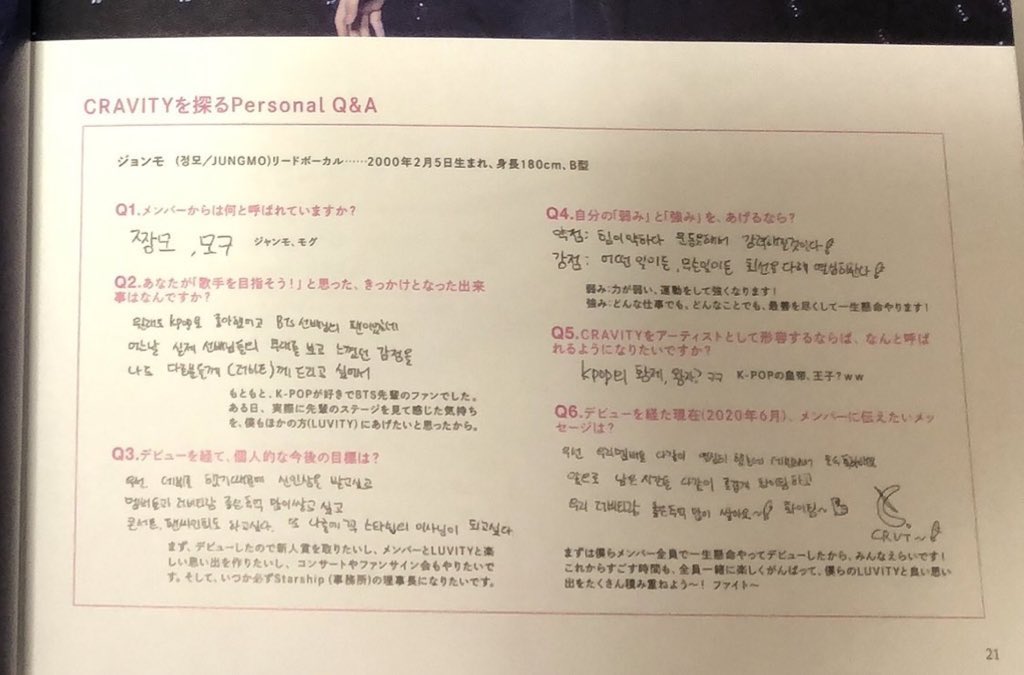 CRAVITYを探るPersonal Q&A
ジョンモ (정모/JUNGMO)リードボーカル……2000年2月5日生まれ、身長180cm、B型
Q1.メンバーからは何と呼ばれていますか?
짱모, 모구 ジャンモ、モグ
Q2.あなたが「歌手を目指そう!」と思った、きっかけとなった出来
事はなんですか?
원래도 kpop을 좋아했고 BTS 선배님의 팬이었는데
어느날 실제 선배님들의 무대를 보고 느꼈던 감정을
나도 다른분들께 (러비티)께 드리고 싶어서
もともと、K-POPが好きでBTS先輩のファンでした。
ある日、実際に先輩のステージを見て感じた気持ち
を、僕もほかの方(LUVITY)にあげたいと思ったから。
Q3.デビューを経て、個人的な今後の目標は?
우선 데뷔를 했기때문에 신인상을 받고싶고
멤버들과 러비티랑 좋은추억 많이쌓고 싶고
콘서트, 팬싸인회도 하고싶다. 또 나중에 꼭 스타쉽의 이사님이 되고싶다
まず、デビューしたので新人賞を取りたいし、メンバーとLUVITYと楽
しい思い出を作りたいし、コンサートやファンサイン会もやりたいで
す。そして、いつか必ずStarship (事務所)の理事長になりたいです。
Q4.自分の「弱み」と「強み」を、あげるなら?
약점: 힘이 약하다 운동을해서 강력해질것이다
강점: 어떤 일이든, 무슨일이든 최선을 다해 열심히한다
弱み:力が弱い、運動をして強くなります!
強み:どんな仕事でも。どんなことでも、最善を尽くして一生懸命やります!
Q5.CRAVITYをアーティストとして形容するならば、なんと呼ば
れるようになりたいですか?
kpop의 황제, 왕자? ㅋㅋ K-POPの皇帝、王子?ww
Q6.デビューを経た現在(2020年6月)、メンバーに伝えたいメッ
セージは?
우선 우리멤버들 다같이 열심히 했는데 데뷔해서
앞으로 남은 시간들 다같이 즐겁게 화이팅하고
우리 러비티랑 좋은추억 많이 쌓아요~ 화이팅~
CRVT~
まずは僕らメンバー全員で一生懸命やってデビューしたから、みんなえらいです!
これからすごす時間も、全員一緒に楽しくがんばって、僕らのLUVITYと良い思い
出をたくさん積み重ねよう〜! ファイト〜
21